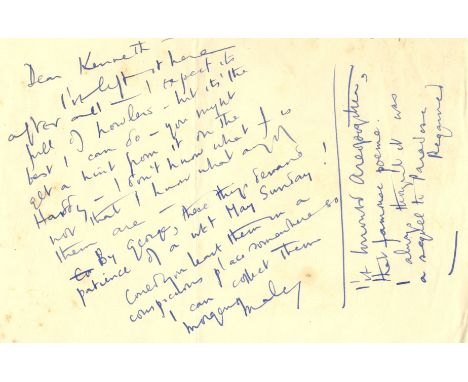 Dear Kenneth
I've left it here
after all — I expect it's
full of howlers — but it's the
best I can do — you might
get a hint from it on the
Hardy — I don't know what f is
not that I know what any of
them are —
By George, these things demand
patience of a wet May Sunday!
Could you leave them in a
conspicuous place somewhere so
I can collect them
tomorrow
Isn't Areopagitica,
that famous poem.
I always thought it was
a sequel to Paradise
Regained